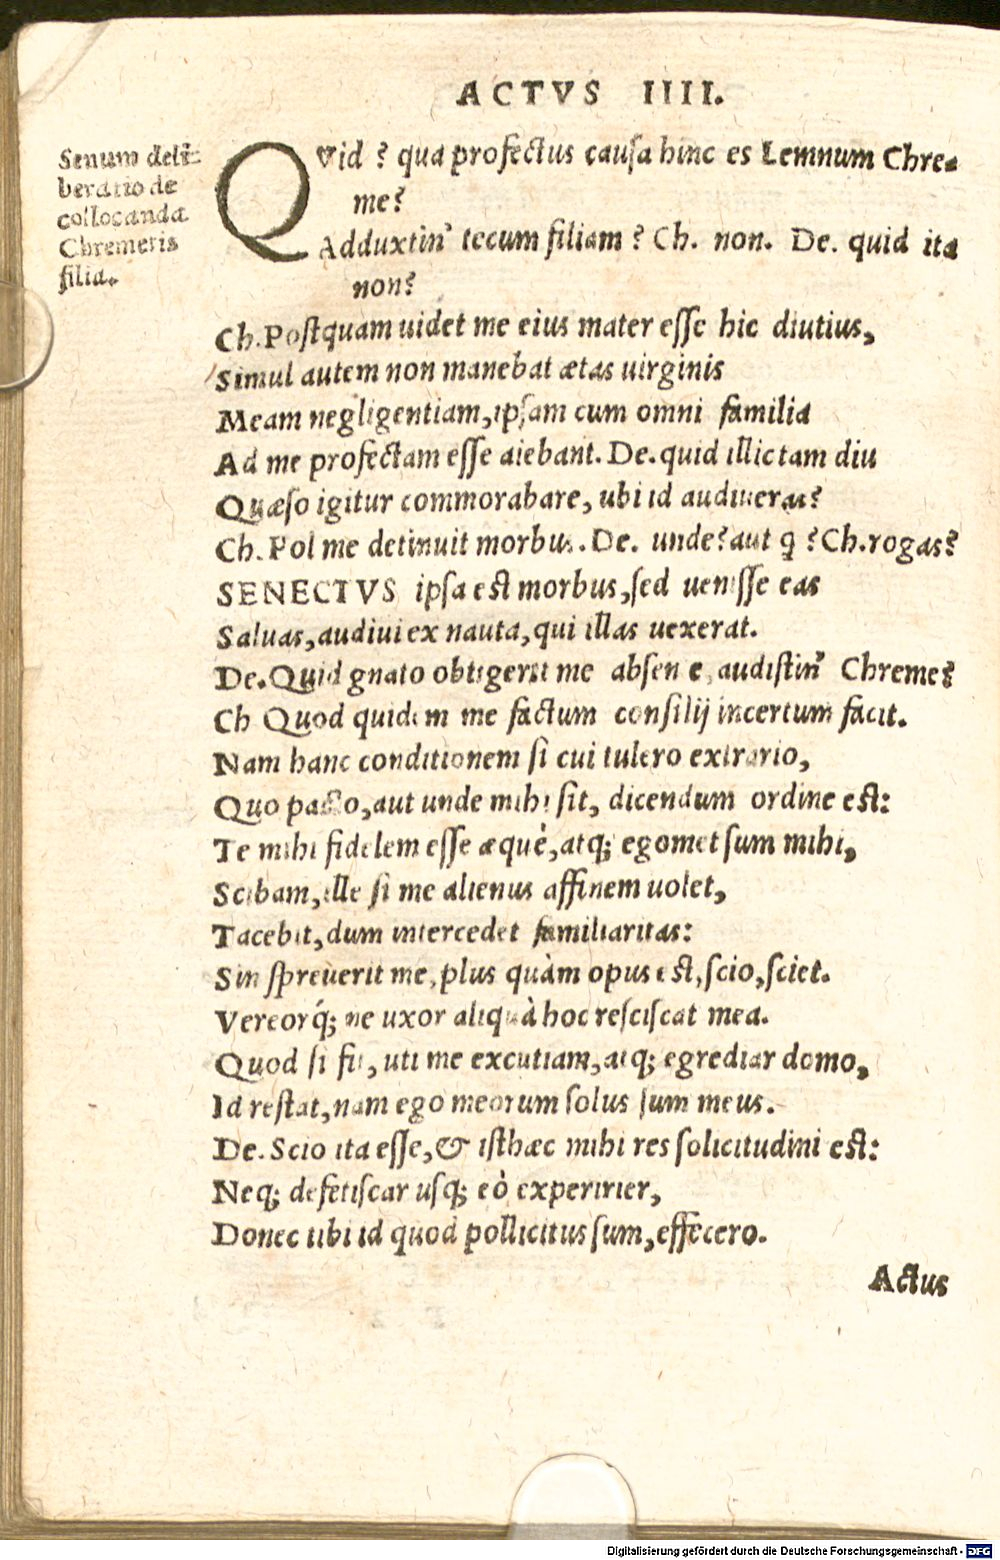 ACTVS IIII.
Senum deli=
beratio de
collocanda
Chremetis
filia.
QVid ? qua profectus causa hinc es Lemnum Chre=
me?
Adduxtin' tecum filiam ? Ch. non. De. quid ita
non?
Ch. Postquam uidet me eius mater esse hic diutius,
Simul autem non manebat ætas uirginis
Meam negligentiam, ipsam cum omni familia
Ad me profectam esse aiebant. De. quid illic tam diu
Quæso igitur commorabare, ubi id audiueras?
Ch. Pol me detinuit morbus. De. unde? aut q̃ ? Ch. rogas?
SENECTVS ipsa est morbus, sed uenisse eas
Saluas, audiui ex nauta, qui illas uexerat.
De. Quid gnato obtigerit me absente, audistin' Chreme?
Ch Quod quidem me factum consilij incertum facit.
Nam hanc conditionem si cui tulero extrario,
Quo pacto, aut unde mihi sit, dicendum ordine est:
Te mihi fidelem esse æquè, atq; egomet sum mihi,
Scibam, ille si me alienus affinem uolet,
Tacebit, dum intercedet familiaritas:
Sin spreuerit me, plus quàm opus est, scio, sciet.
Vereorq́; ne uxor aliquà hoc resciscat mea.
Quod si fit, uti me excutiam, atq; egrediar domo,
Id restat, nam ego meorum solus sum meus.
De. Scio ita esse, & isthæc mihi res solicitudini est:
Neq; defetiscar usq; eò experirier,
Donec tibi id quod pollicitus sum, effecero.
Actus
Digitalisierung gefördert durch die Deutsche Forschungsgemeinschaft - DFG